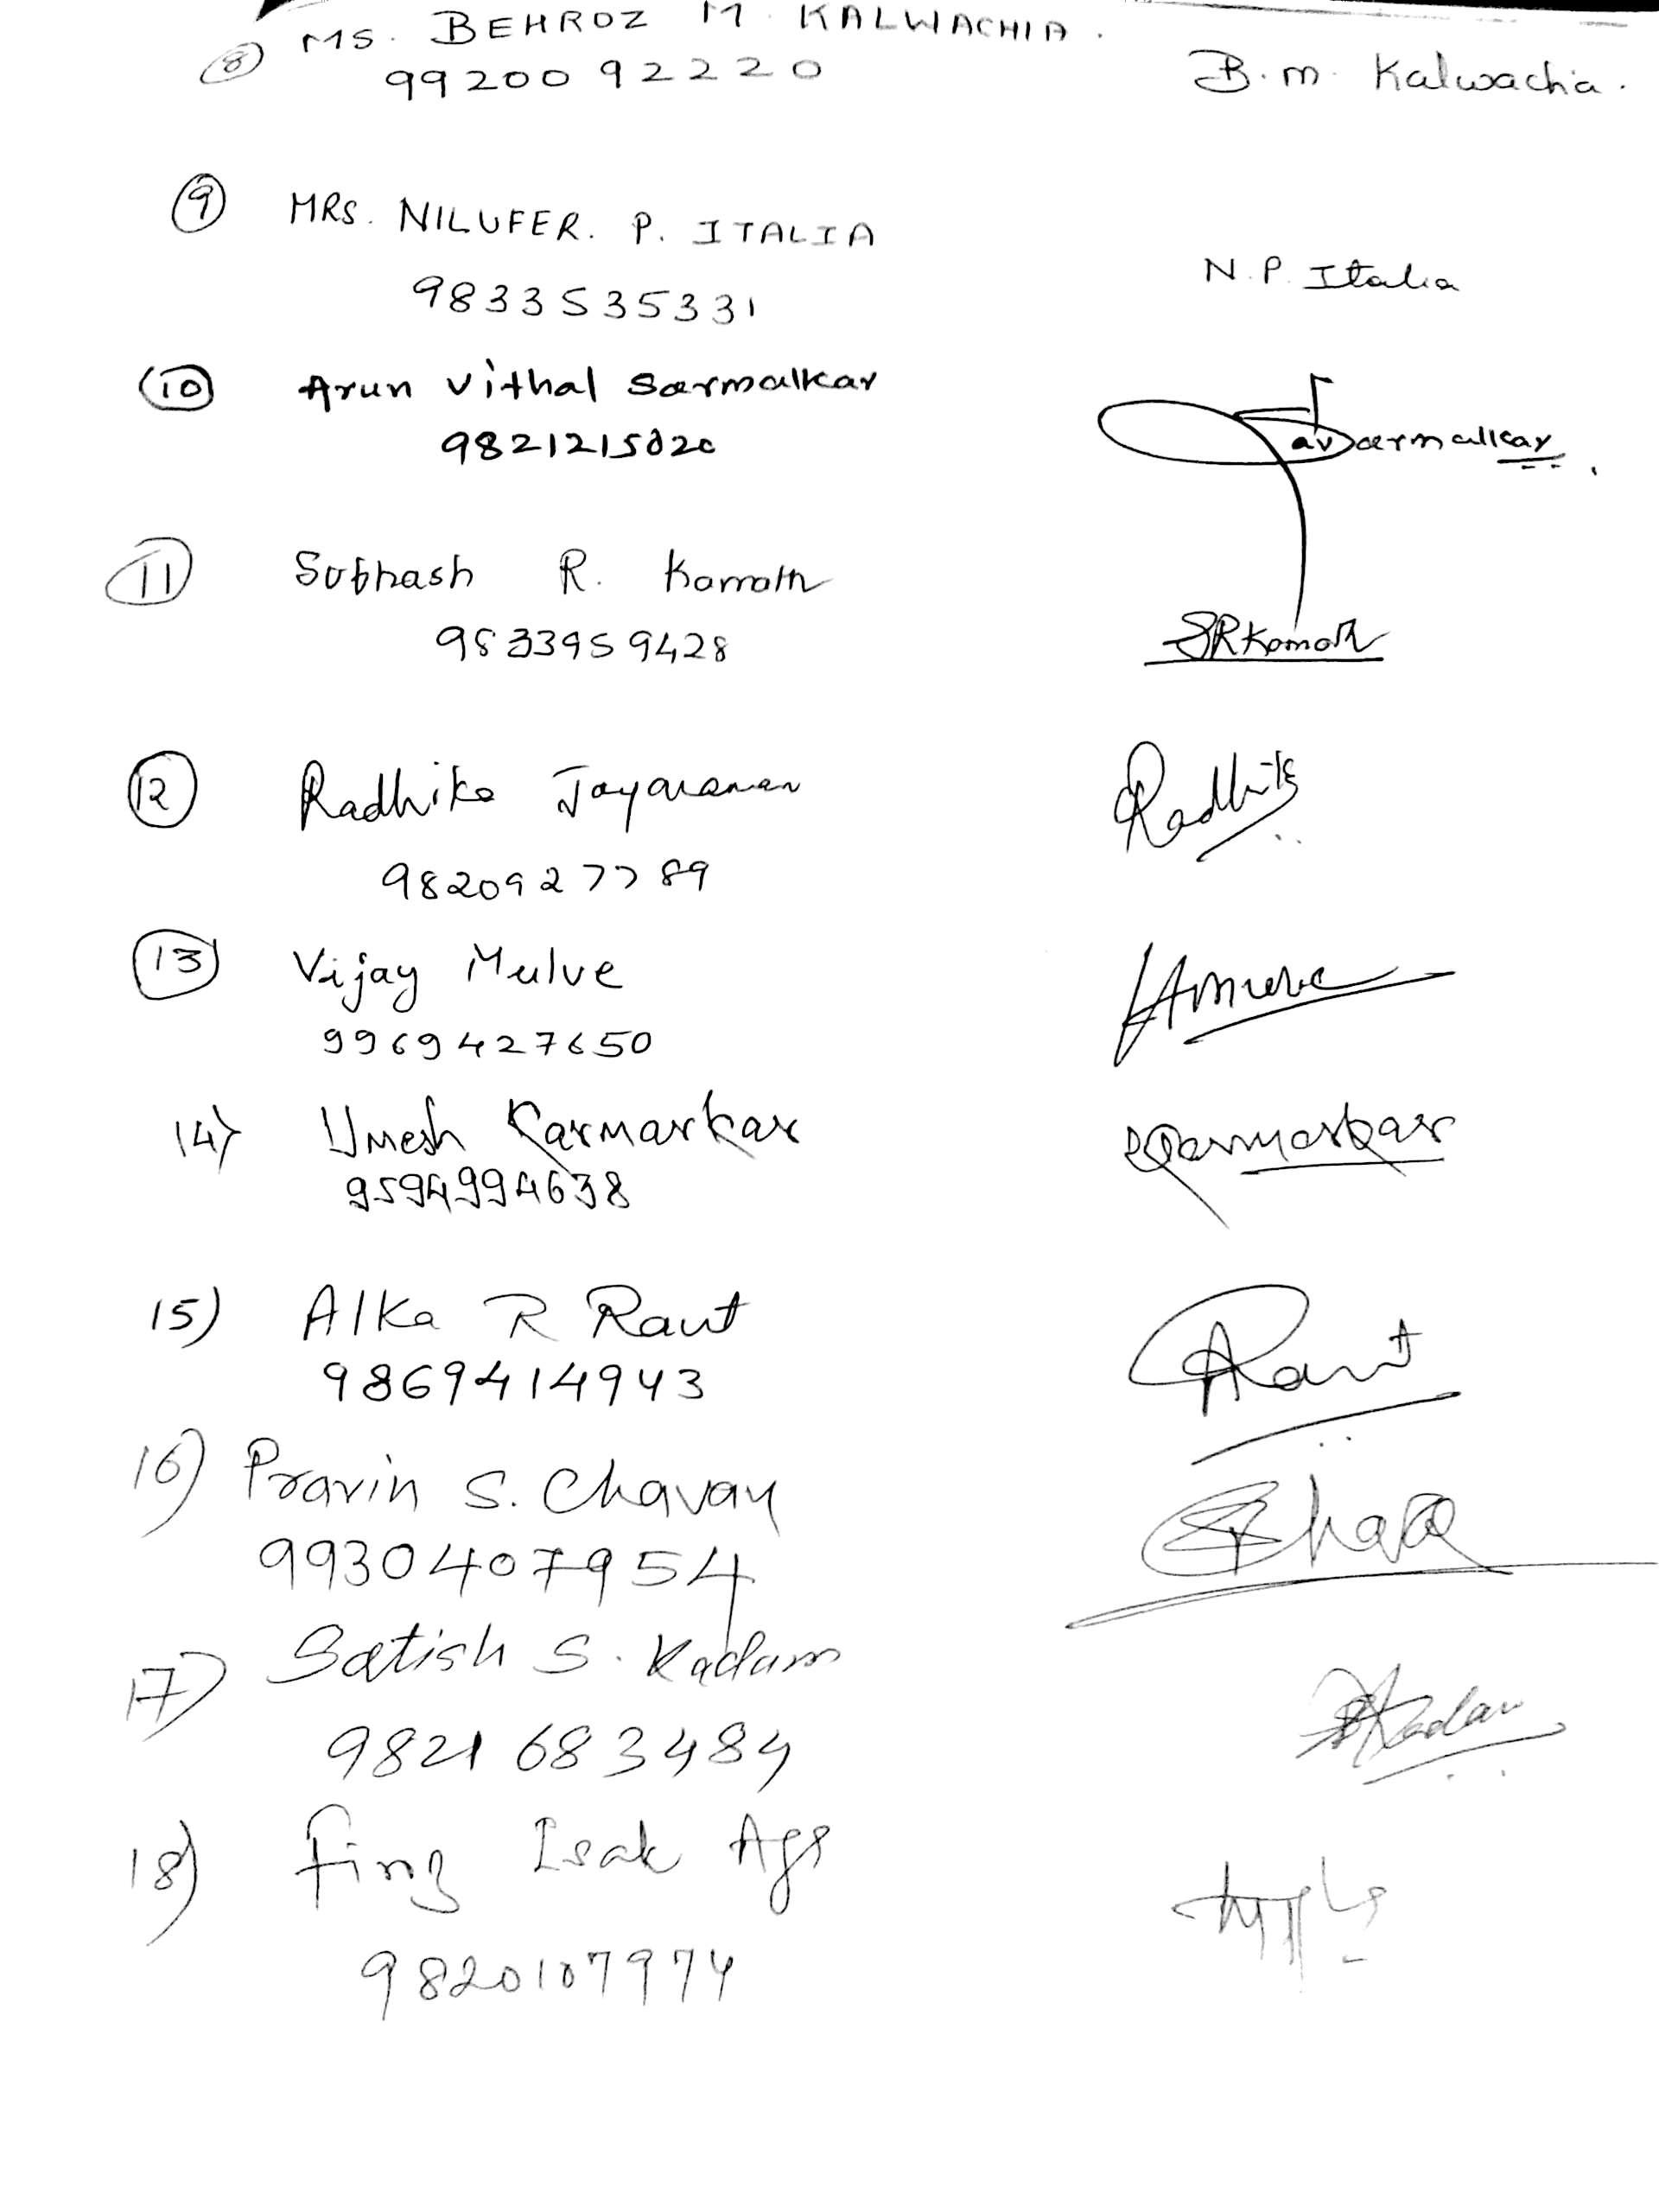 8 MS. BEHROZ M. KALWACHIA.
9920092220
B.m. Kalwachia.
9 MRS. NILUFER. P. ITALIA
9833535331
N.P. Italia
10 Arun Vithal Sarmalkar
9821215020
avSarmalkar
11 Subhash R. Kamath
9833959428
SRKamath
12 Radhika Jayaraman
9820927789
Radhika
13 Vijay Mulve
9969427650
14) Umesh Karmarkar
9594994638
Karmarkar
15) Alka R Raut
9869414943
ARaut
16) Pravin S. Chavan
9930407954
17) Satish S. Kadam
9821683484
SKadam
18) Isak
9820107974